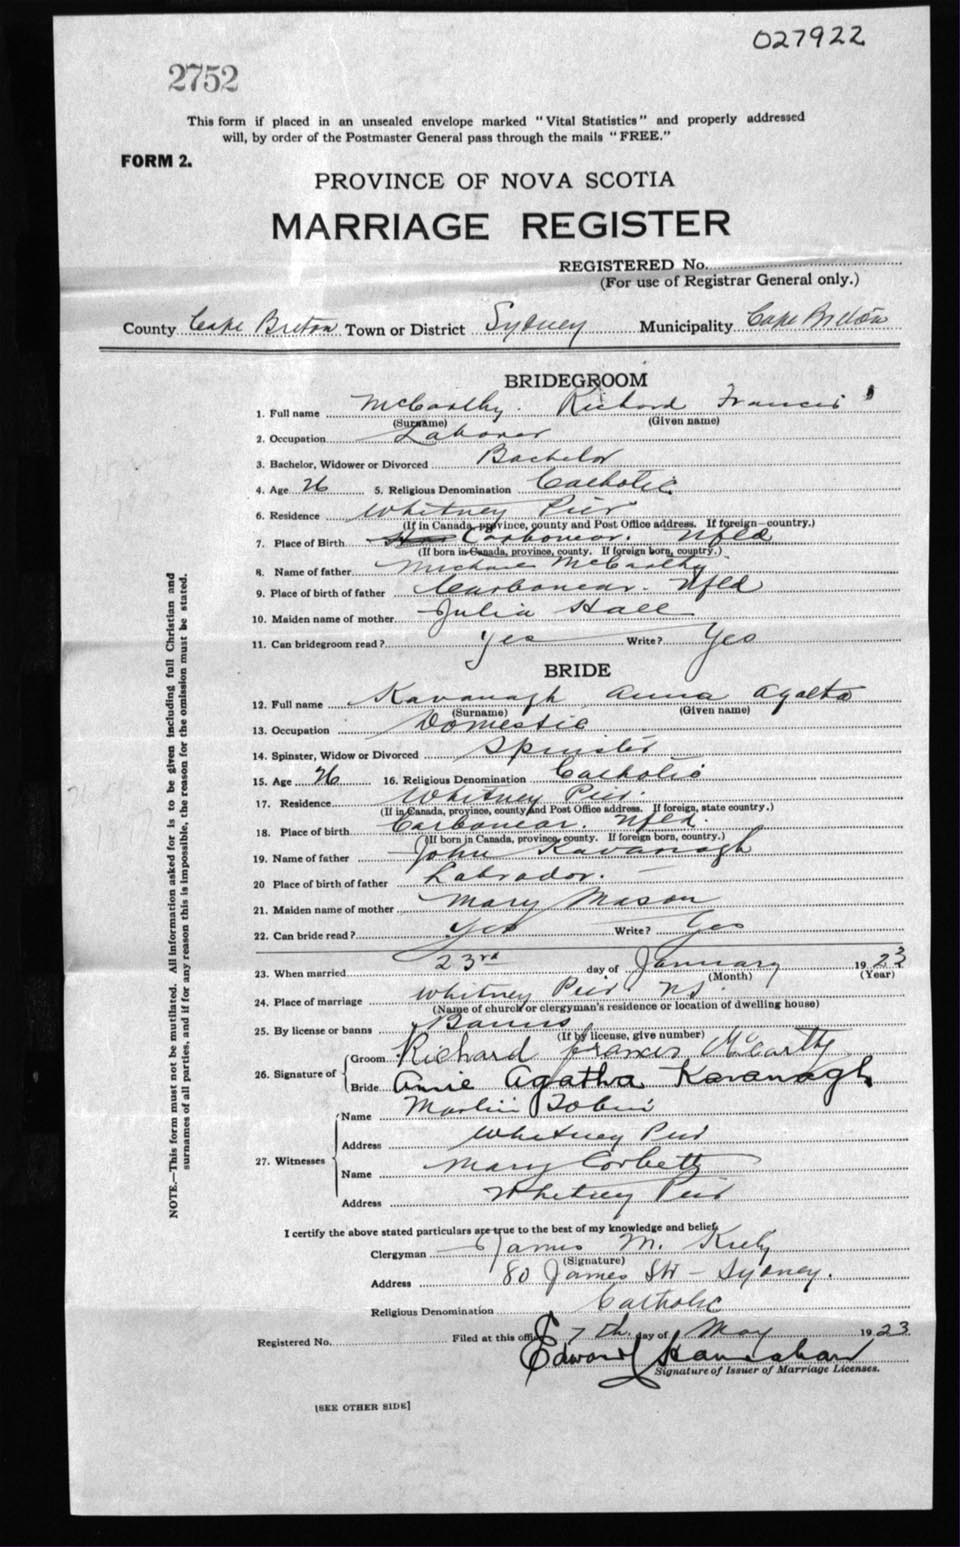 027922
2752
This form if placed in an unsealed envelope marked "Vital Statistics" and properly addressed
will, by order of the Postmaster General pass through the mails "FREE."
FORM 2.
PROVINCE OF NOVA SCOTIA
MARRIAGE REGISTER
REGISTERED No.
(For use of Registrar General only.)
County Cape Breton Town or District Sydney Municipality Cape Breton
BRIDEGROOM
1. Full name McCarthy. Richard Francis
(Surname) (Given name)
2. Occupation Laborer
3. Bachelor, Widower or Divorced Bachelor
4. Age 26 5. Religious Denomination Catholic
6. Residence Whitney Pier
(If in Canada, province, county and Post Office address. If foreign—country.)
7. Place of Birth Carbonear. Nfld
(If born in Canada, province, county. If foreign born, country.)
8. Name of father Michael McCarthy
9. Place of birth of father Carbonear. Nfld
10. Maiden name of mother Julia Hall
11. Can bridegroom read? Yes Write? Yes
BRIDE
12. Full name Kavanagh Anna Agatta
(Surname) (Given name)
13. Occupation Domestic
14. Spinster, Widow or Divorced Spinster
15. Age 26 16. Religious Denomination Catholic
17. Residence Whitney Pier.
(If in Canada, province, county and Post Office address. If foreign, state country.)
18. Place of birth Carbonear. Nfld.
(If born in Canada, province, county. If foreign born, country.)
19. Name of father John Kavanagh
20 Place of birth of father Labrador.
21. Maiden name of mother Mary Mason
22. Can bride read? Yes Write? Yes
23. When married 23rd day of January 1923
(Month) (Year)
24. Place of marriage Whitney Pier NS.
(Name of church or clergyman's residence or location of dwelling house)
25. By license or banns Banns
(If by license, give number)
26. Signature of Groom Richard Francis McCarthy
Bride Annie Agatha Kavanagh
27. Witnesses Name Martin Tobin
Address Whitney Pier
Name Mary Corbett
Address Whitney Pier
I certify the above stated particulars are true to the best of my knowledge and belief.
Clergyman James M. Kiely
(Signature)
Address 80 James Str - Sydney.
Religious Denomination Catholic
Registered No. Filed at this office 7th. day of May 1923
Edward
Signature of Issuer of Marriage Licenses.
[SEE OTHER SIDE]
NOTE.—This form must not be mutilated. All information asked for is to be given including full Christian and
surnames of all parties, and if for any reason this is impossible, the reason for the omission must be stated.